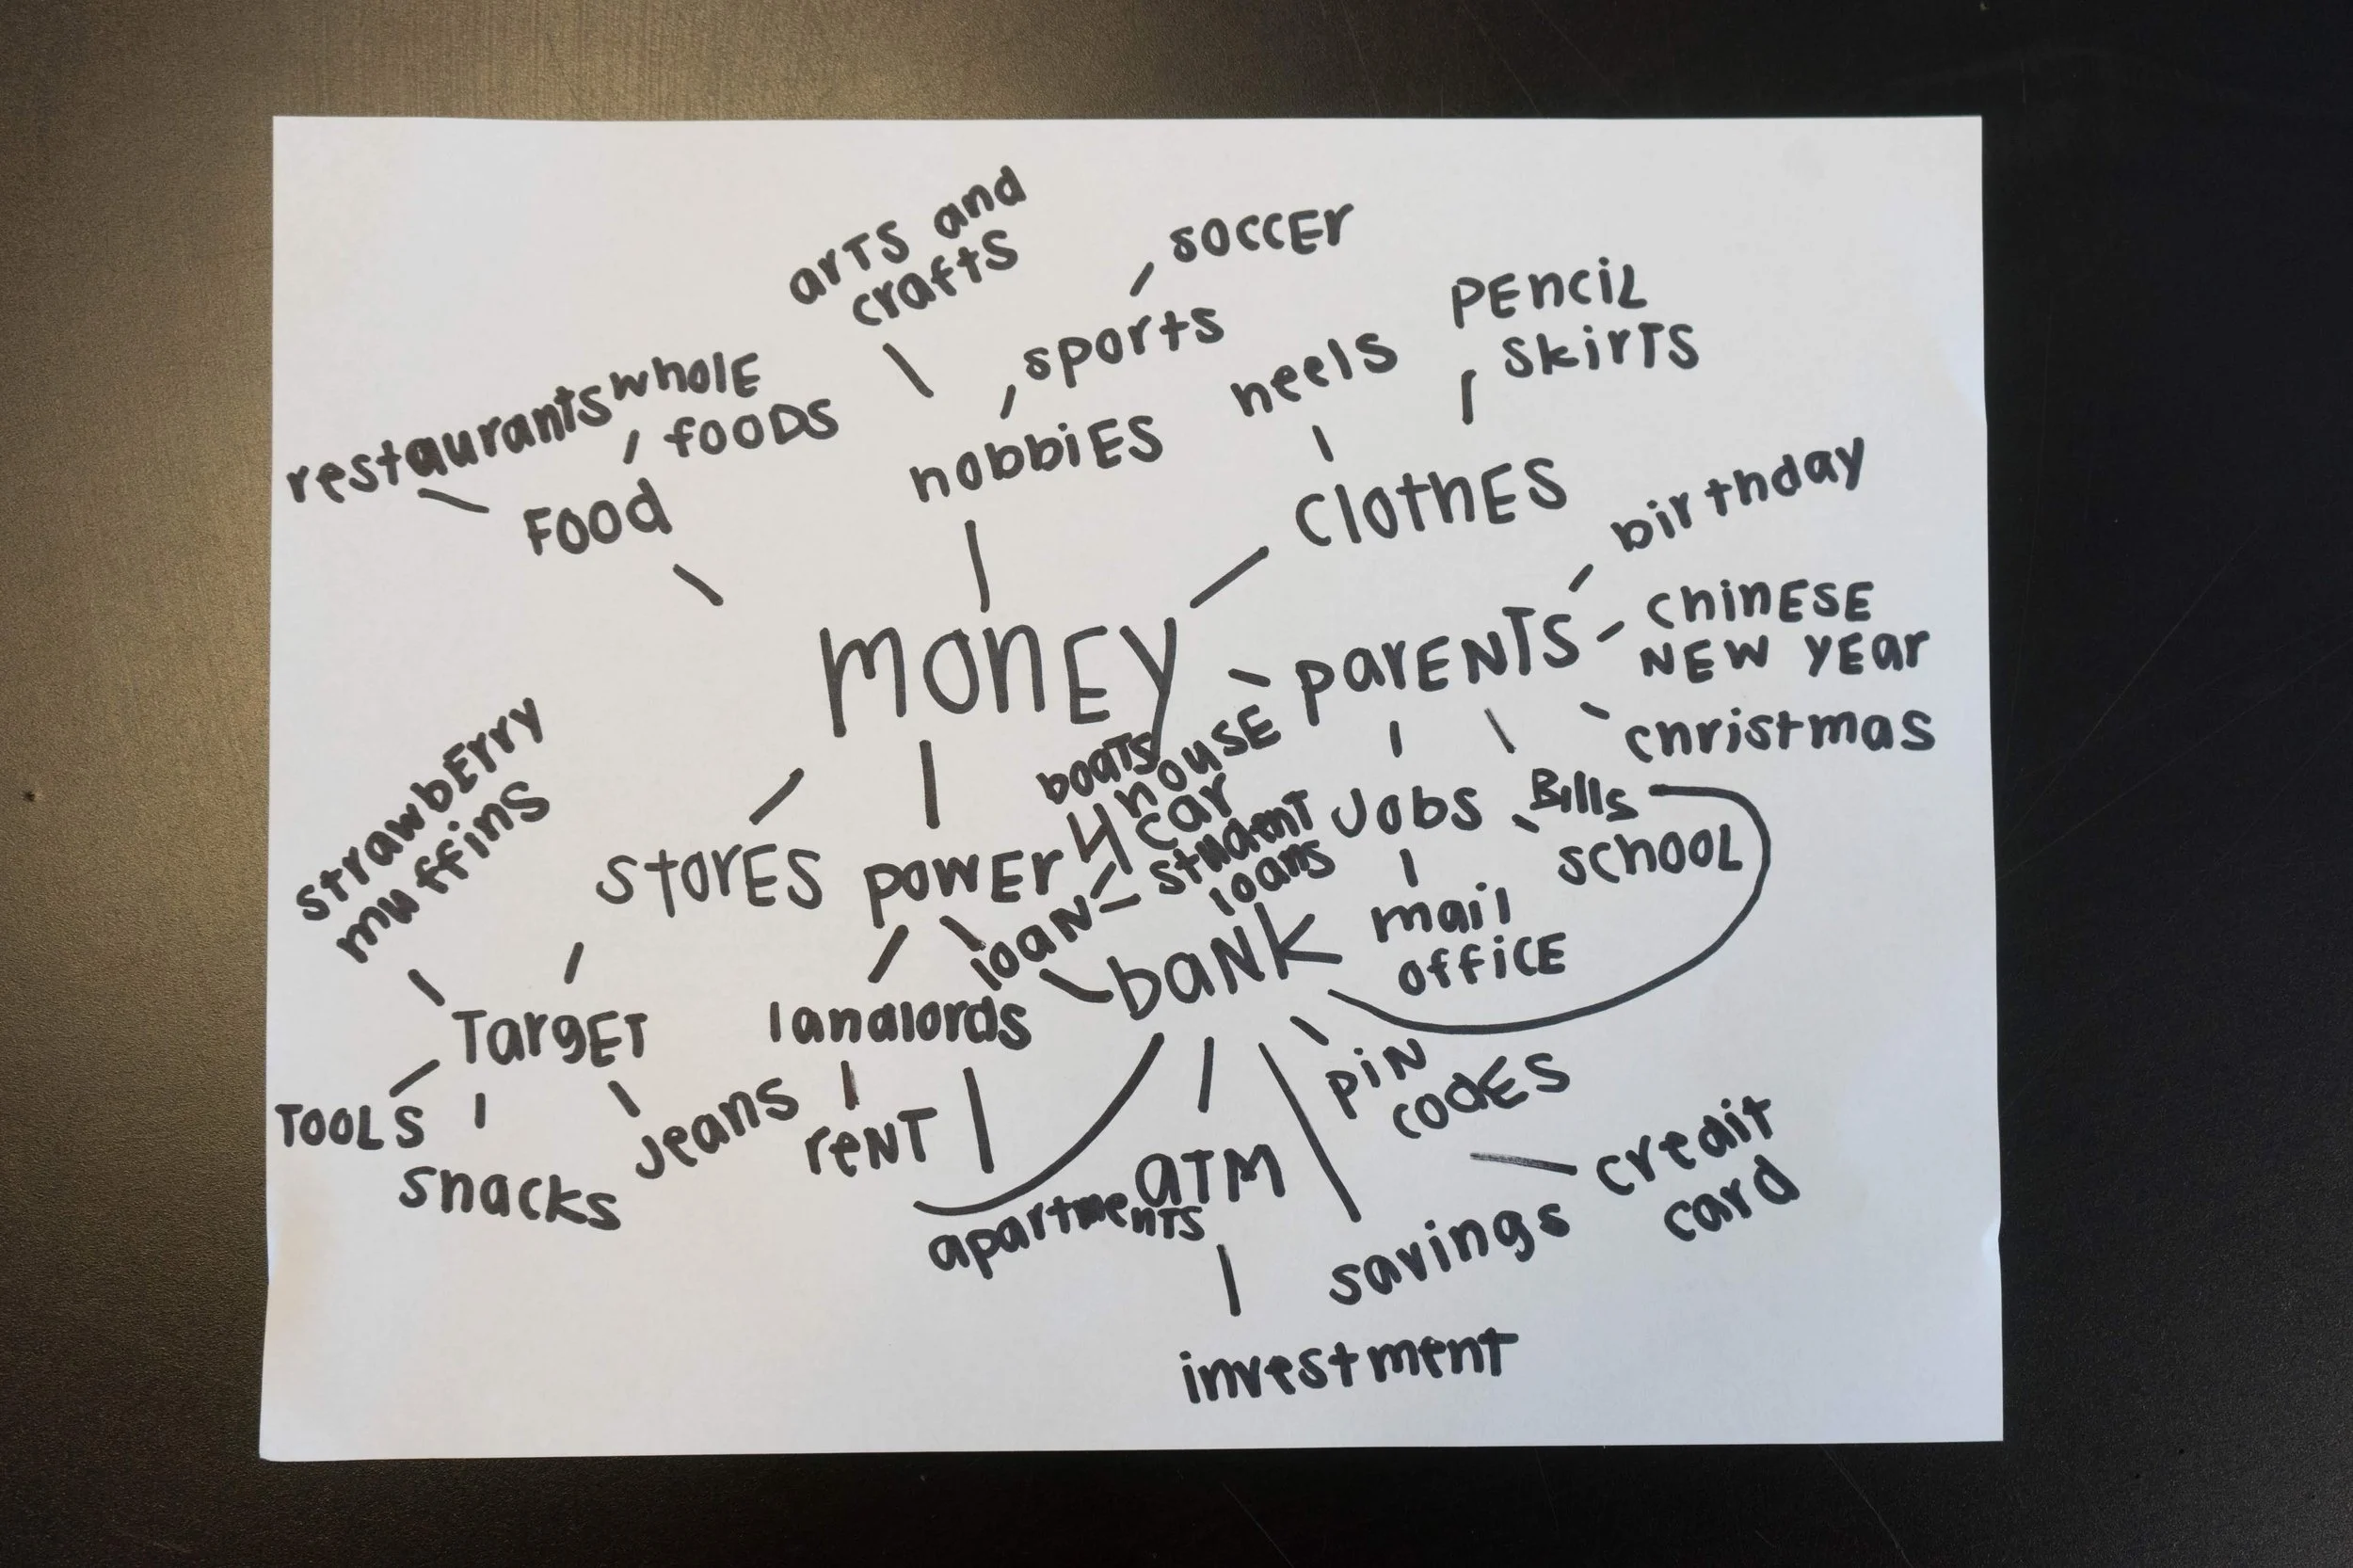 arts and
crafts
soccer
sports
pencil
skirts
heels
restaurants
whole
foods
hobbies
food
clothes
birthday
money
parents
chinese
new year
christmas
boats
house
car
student
loans
jobs
Bills
school
strawberry
muffins
stores
power
loan
bank
mail
office
Target
landlords
pin
codes
Tools
snacks
jeans
rent
apartments
ATM
credit
card
savings
investment